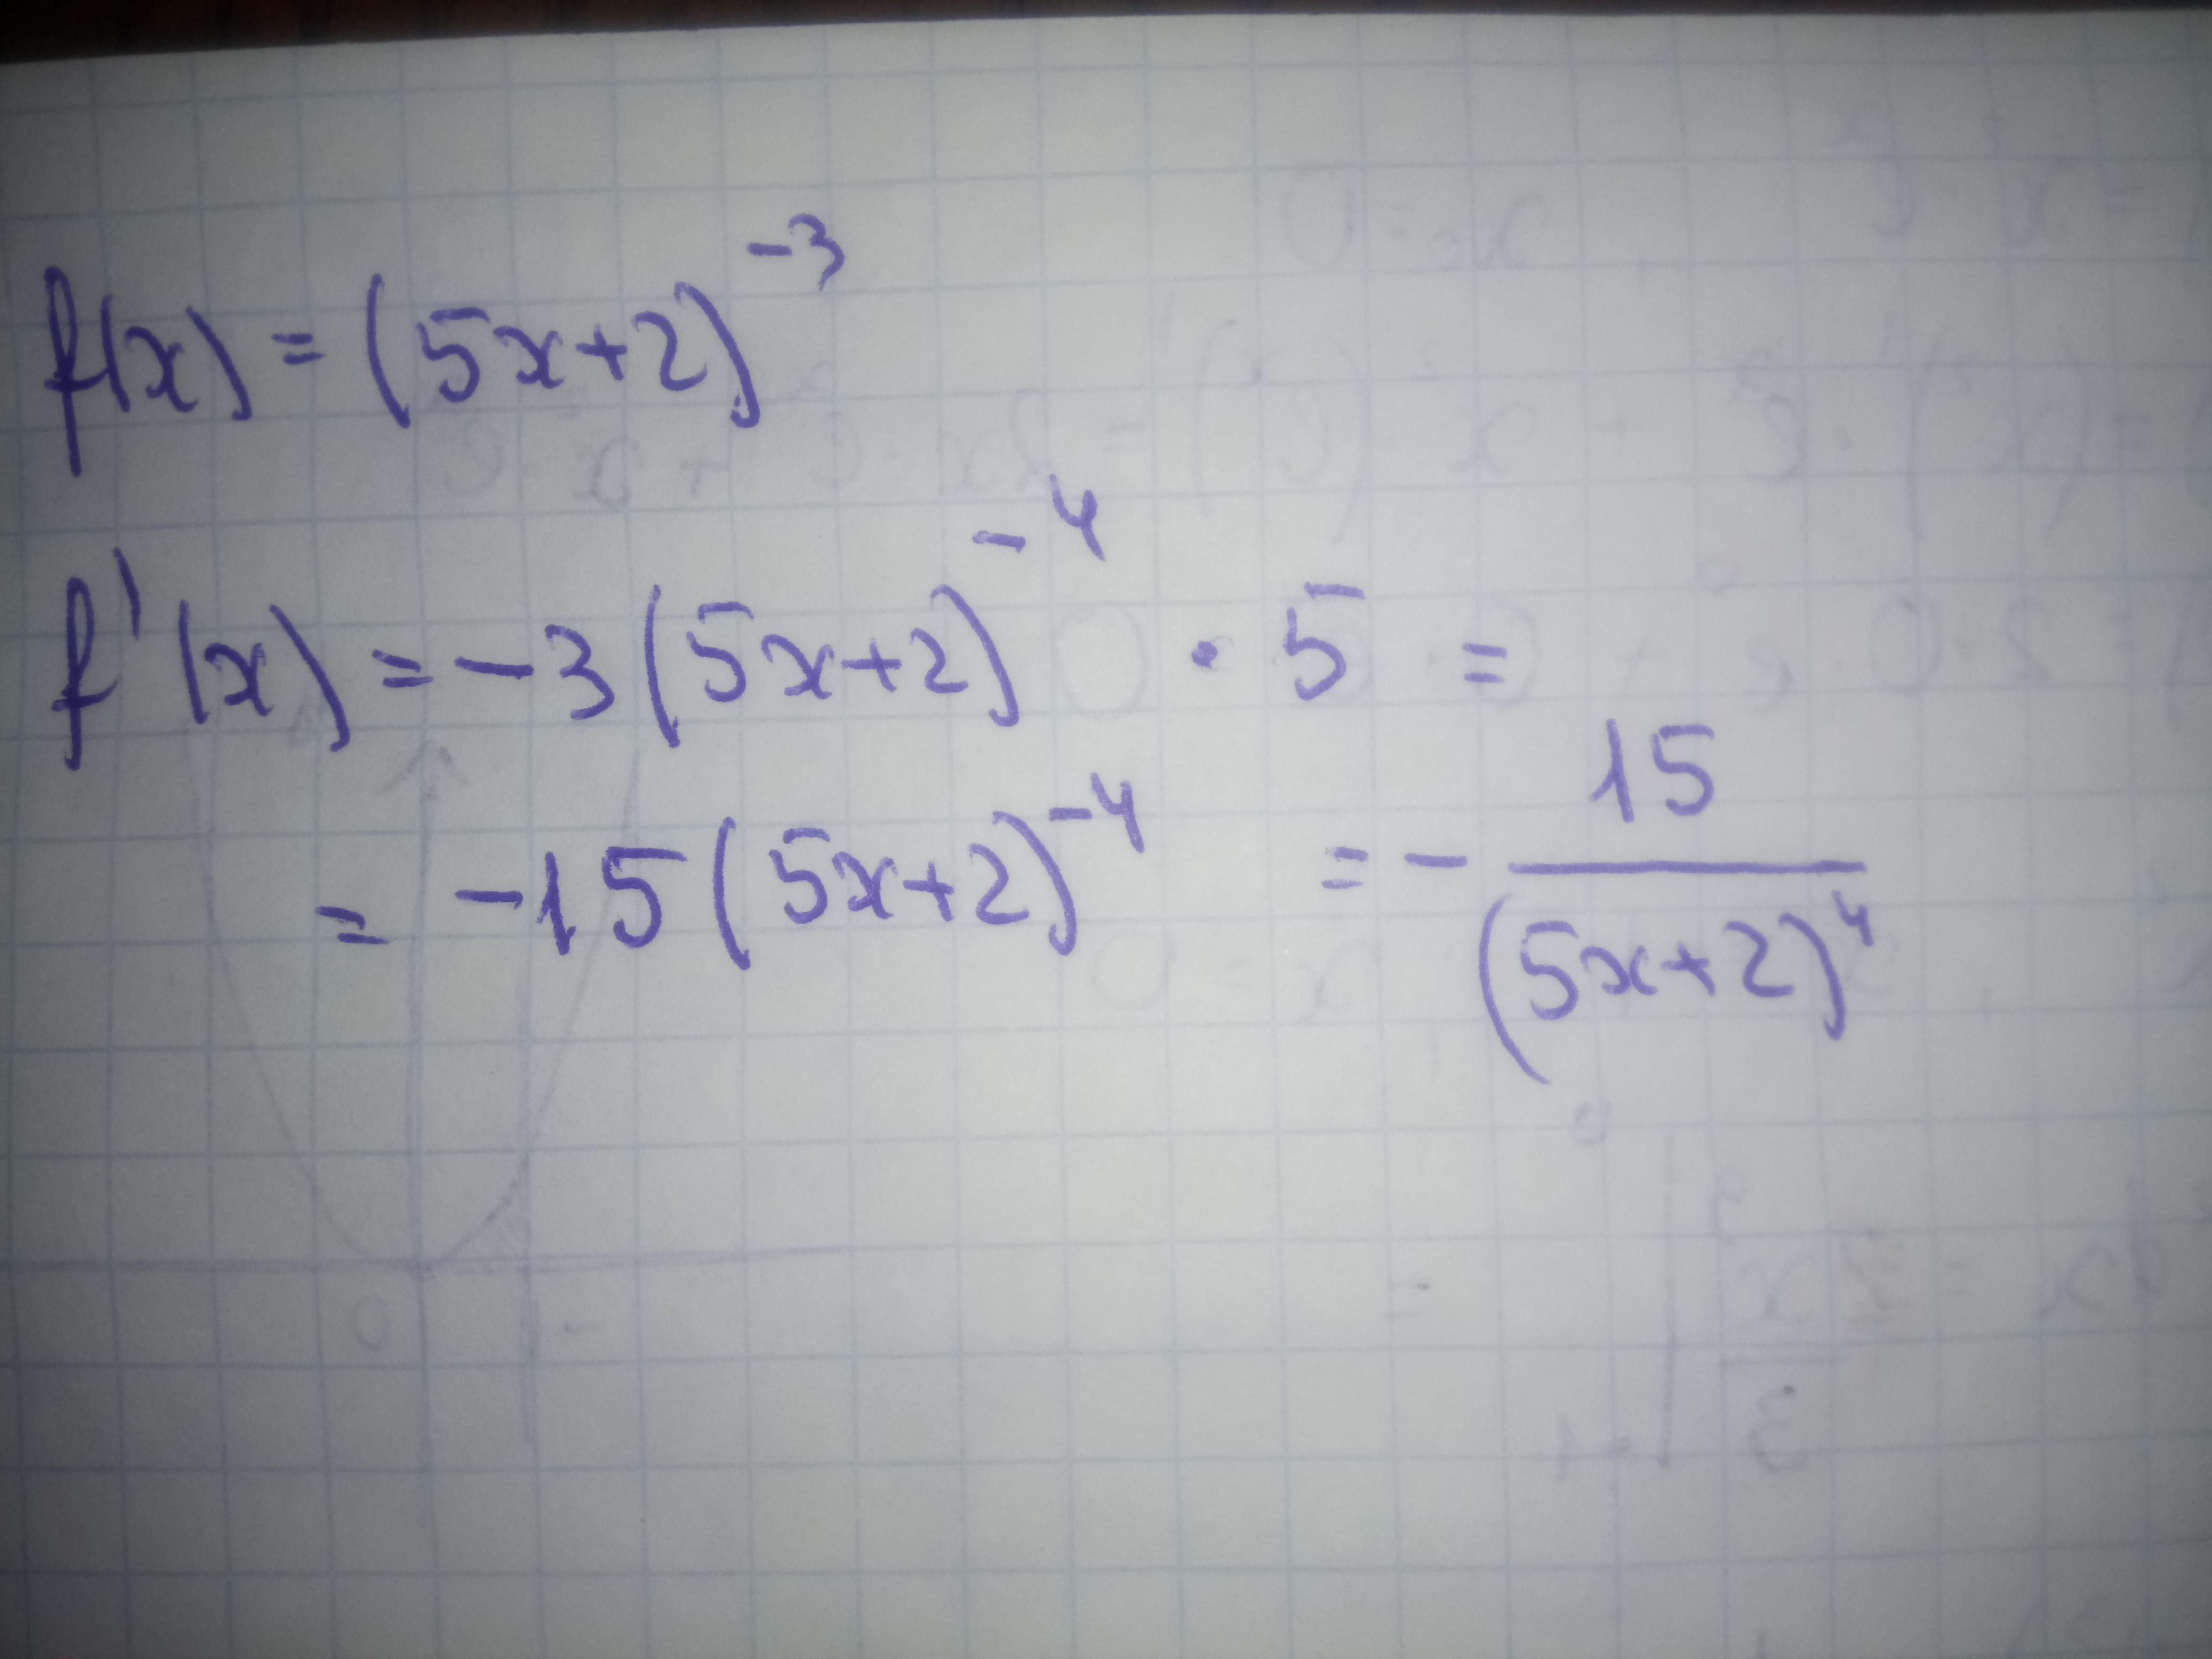 f(x) = (5x+2)^-3
f'(x) = -3(5x+2)^-4 · 5 =
= -15(5x+2)^-4 = - 15/(5x+2)^4